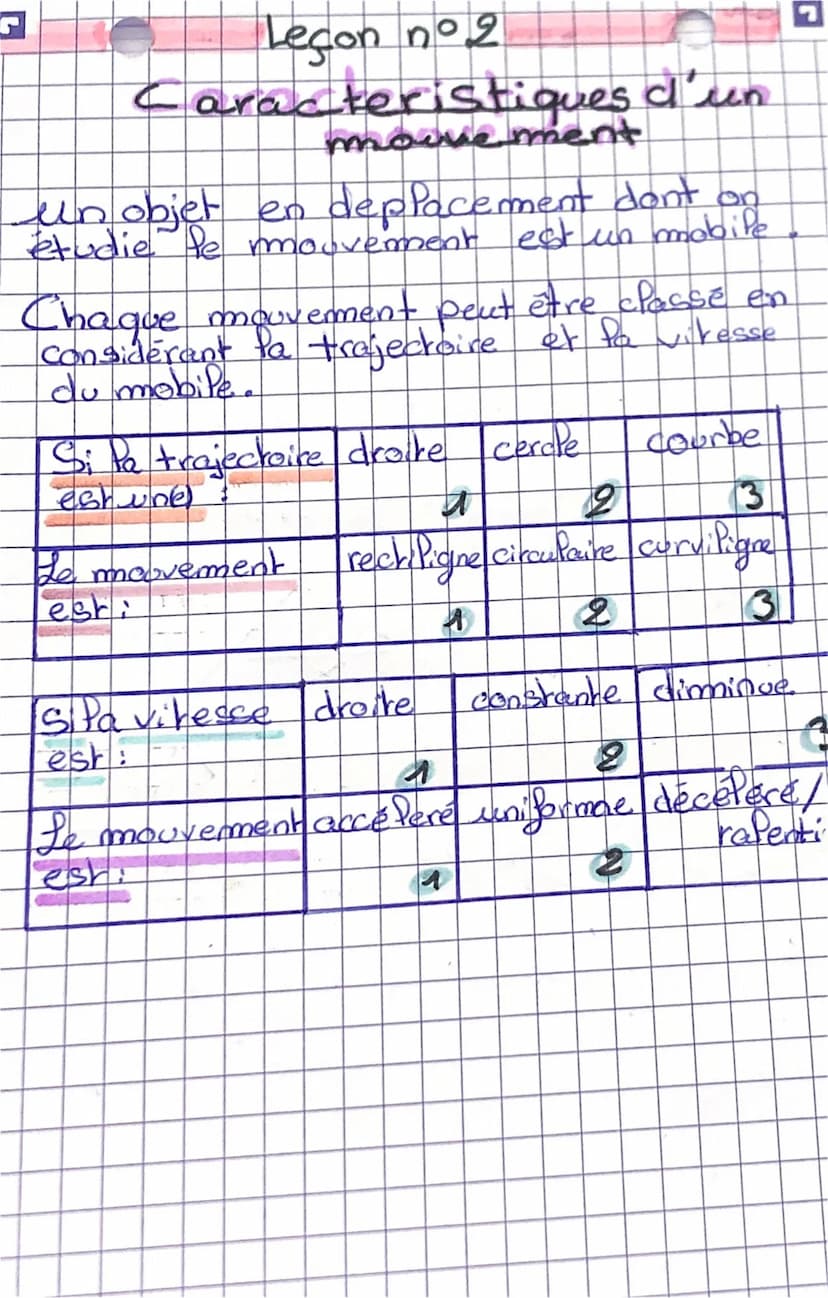 Leçon n°2
Caracteristiques d'un
mouvement
un objet en deplacement dont on
étudie le mouvement est un mobile.
Chaque mouvement peut être classé en
considérant la trajectoire et la vitesse
du mobile.
Si la trajectoire droite cercle courbe
est un(e) : 1 2 3
Le mouvement rectiligne circulaire curviligne
est : 1 2 3
Si la vitesse droite constante diminue
est : 1 2 3
Le mouvement accéleré uniforme décéléré/
ralenti
est : 1 2